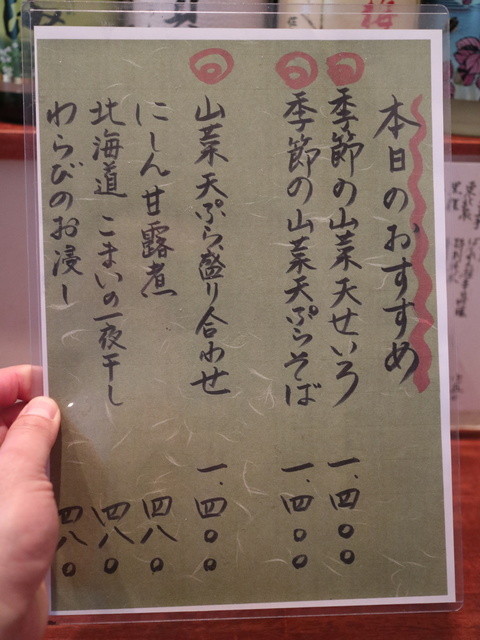 本日のおすすめ
季節の山菜天せいろ 一、四〇〇
季節の山菜天ぷらそば 一、四〇〇
山菜天ぷら盛り合わせ 一、四〇〇
にしん甘露煮 四八〇
北海道 こまいの一夜干し 四八〇
わらびのお浸し 四八〇